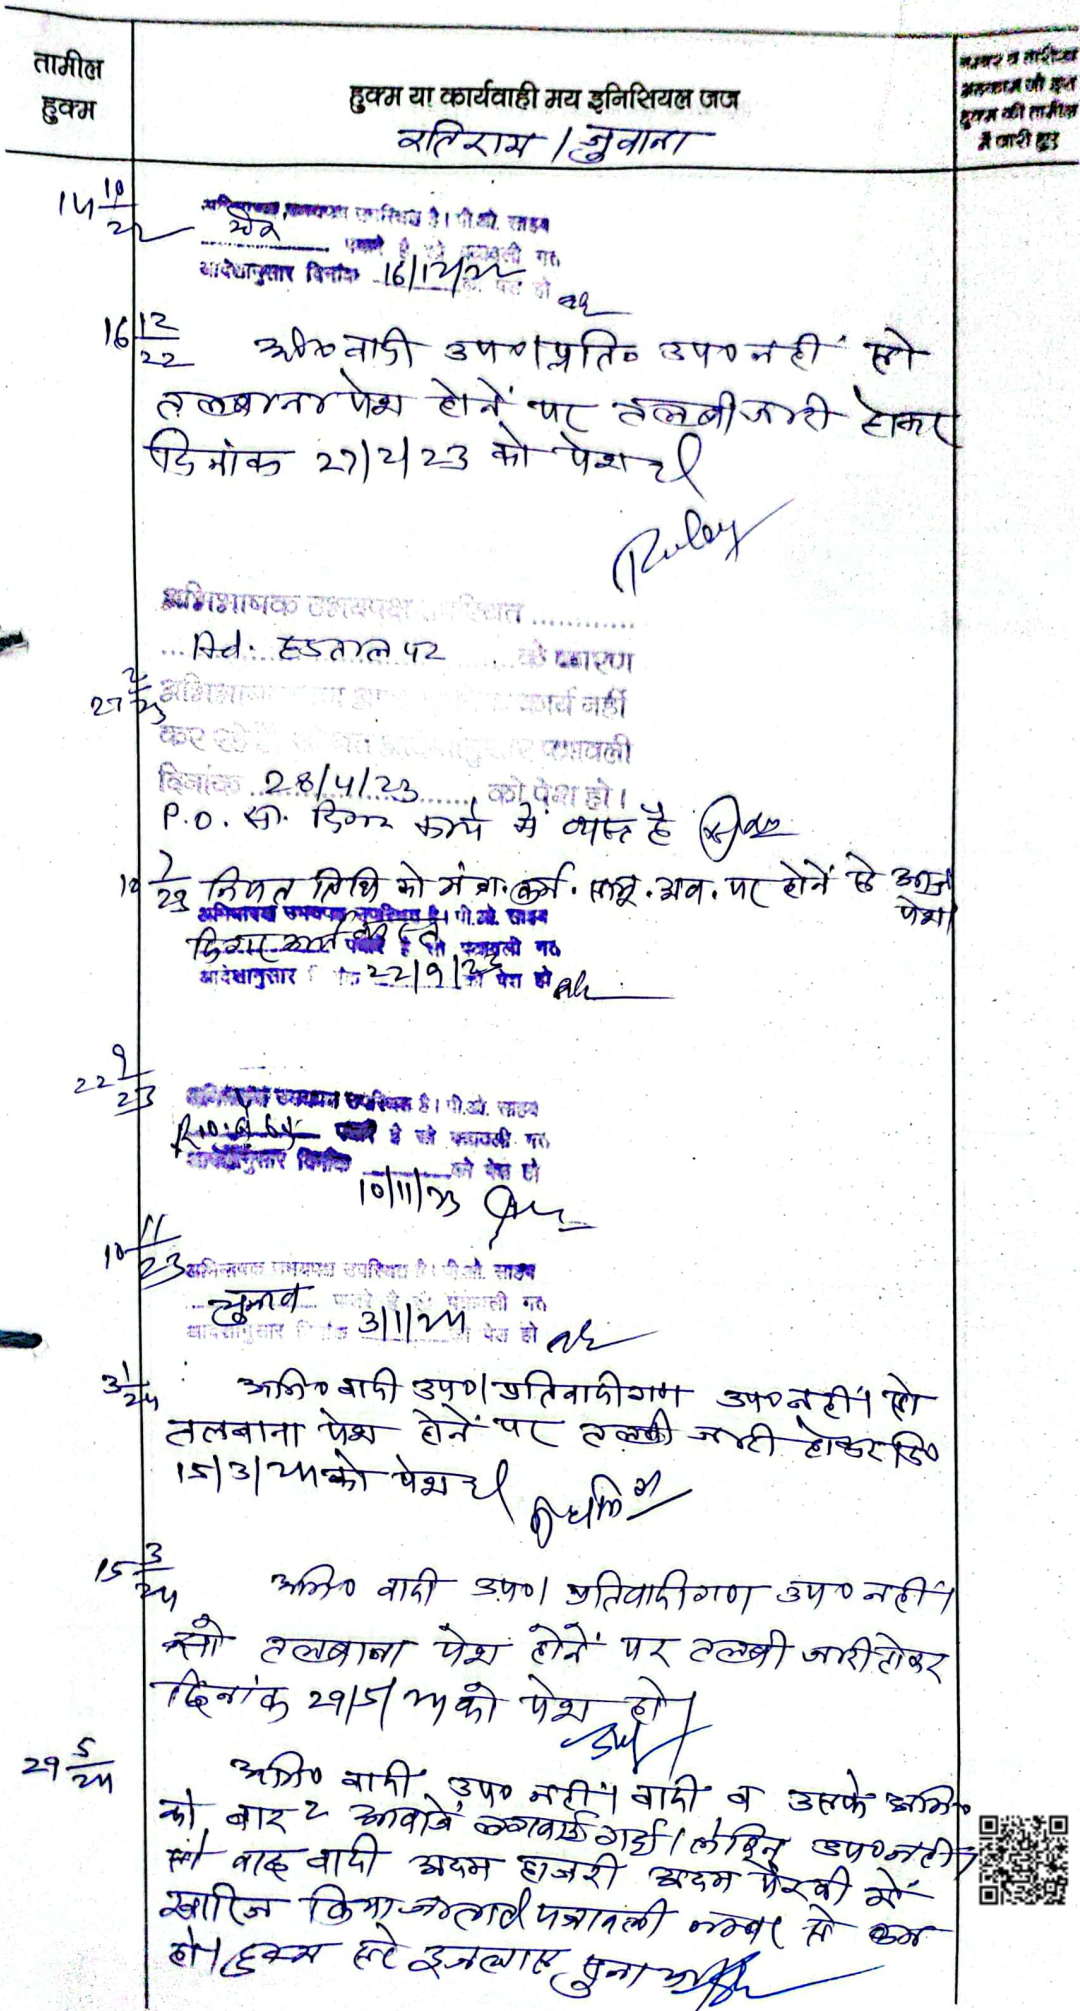 तामील
हुक्म
हुक्म या कार्यवाही मय इनिसियल जज
रतिराम / जुवाना
नम्बर व तारीख
अहकाम जो इस
हुक्म की तामील
में जारी हुए
14 10/22
अभिभाषक उभयपक्ष उपस्थित है। पी.ओ. साहब
है सो पत्रावली गत
आदेशानुसार दिनांक 16/12/22 को पेश हो
16 12/22
अभि० वादी उप०। प्रति० उप० नहीं सो
तलबाना पेश होनें पर तलबी जारी होकर
दिनांक 27/2/23 को पेश हो
अभिभाषक उभयपक्ष उपस्थित ............
... हडताल पर के कारण
27 2/23
कार्य नहीं
कर रहे पत्रावली
दिनांक 28/4/23 को पेश हो।
P.O. सा. दिगर कार्य में व्यस्त है
10 7/23 नियत तिथि को मंत्रा. कर्म. सामू. अव. पर होनें से आज
पेश।
अभिभाषक उभयपक्ष उपस्थित है। पी.ओ. साहब
दिगर कार्य है सो पत्रावली गत
आदेशानुसार 22/9/23 को पेश हो
22 9/23
अभिभाषक उभयपक्ष उपस्थित है। पी.ओ. साहब
है सो पत्रावली गत
आदेशानुसार दिनांक को पेश हो
10/11/23
10 11/23
अभिभाषक उभयपक्ष उपस्थित है। पी.ओ. साहब
चुनाव है सो पत्रावली गत
आदेशानुसार 3/1/24 को पेश हो
3 1/24
अभि० वादी उप०। प्रतिवादीगण उप० नहीं। सो
तलबाना पेश होनें पर तलबी जारी होकर दि०
15/3/24 को पेश हो
15 3/24
अभि० वादी उप०। प्रतिवादीगण उप० नहीं।
सो तलबाना पेश होनें पर तलबी जारी होकर
दिनांक 29/5/24 को पेश हो।
29 5/24
अभि० वादी उप० नहीं। वादी व उसके अभि०
को बार २ आवाजें लगवाई गई। लेकिन उप० नहीं
सो वाद वादी अदम हाजरी अदम पैरवी में
खारिज किया जाता है पत्रावली नम्बर से कम
हो। हुक्म सरे इजलास सुनाया